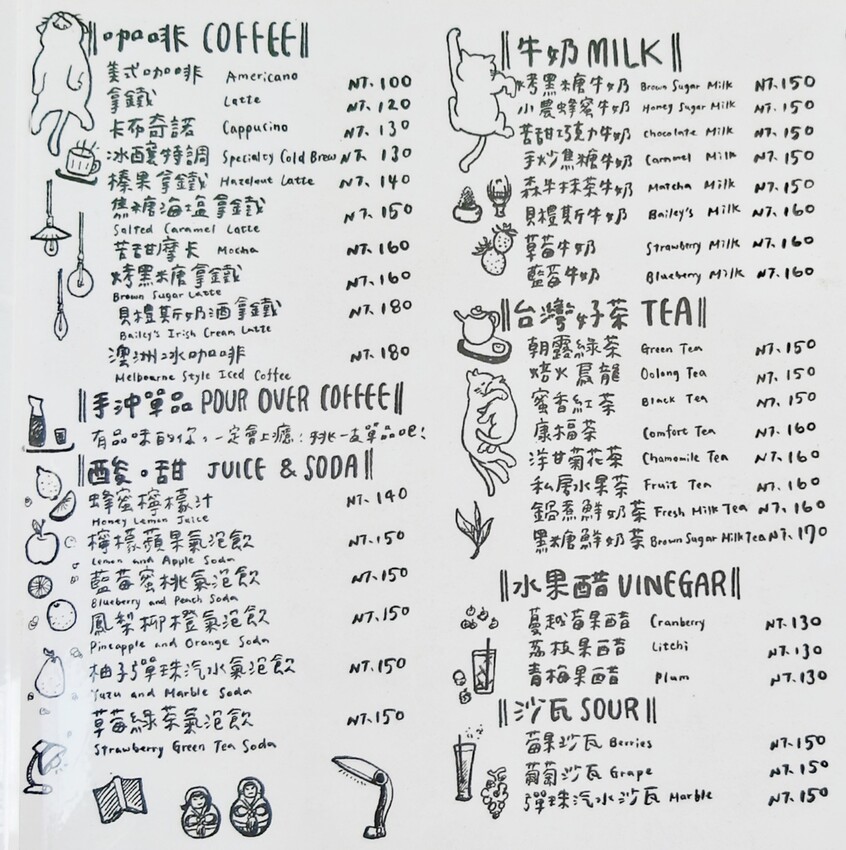 咖啡 COFFEE
美式咖啡 Americano NT. 100
拿鐵 Latte NT. 120
卡布奇諾 Cappucino NT. 130
冰釀特調 Specialty Cold Brew NT. 130
榛果拿鐵 Hazelnut Latte NT. 140
焦糖海塩拿鐵 NT. 150
Salted Caramel Latte
苦甜摩卡 Mocha NT. 160
烤黑糖拿鐵 NT. 160
Brown Sugar Latte
貝禮斯奶酒拿鐵 NT. 180
Bailey's Irish Cream Latte
澳洲冰咖啡 NT. 180
Melbourne Style Iced Coffee
手沖單品 POUR OVER COFFEE
有品味的你,一定會上癮!挑一支單品吧!
酸。甜 JUICE & SODA
蜂蜜檸檬汁 NT. 140
Honey Lemon Juice
檸檬蘋果氣泡飲 NT. 150
Lemon and Apple Soda
藍莓蜜桃氣泡飲 NT. 150
Blueberry and Peach Soda
鳳梨柳橙氣泡飲 NT. 150
Pineapple and Orange Soda
柚子彈珠汽水氣泡飲 NT. 150
Yuzu and Marble Soda
草莓綠茶氣泡飲 NT. 150
Strawberry Green Tea Soda
牛奶 MILK
烤黑糖牛奶 Brown Sugar Milk NT. 150
小農蜂蜜牛奶 Honey Sugar Milk NT. 150
苦甜巧克力牛奶 chocolate Milk NT. 150
手炒焦糖牛奶 Caramel Milk NT. 150
森半抹茶牛奶 Matcha Milk NT. 150
貝禮斯牛奶 Bailey's Milk NT. 160
草莓牛奶 Strawberry Milk NT. 160
藍莓牛奶 Blueberry Milk NT. 160
台灣好茶 TEA
朝露綠茶 Green Tea NT. 150
焙火烏龍 Oolong Tea NT. 150
蜜香紅茶 Black Tea NT. 150
康福茶 Comfort Tea NT. 160
洋甘菊花茶 Chamomile Tea NT. 160
私房水果茶 Fruit Tea NT. 160
鍋煮鮮奶茶 Fresh Milk Tea NT. 160
黑糖鮮奶茶 Brown Sugar Milk Tea NT. 170
水果醋 VINEGAR
蔓越莓果醋 Cranberry NT. 130
荔枝果醋 Litchi NT. 130
青梅果醋 Plum NT. 130
沙瓦 SOUR
莓果沙瓦 Berries NT. 150
葡萄沙瓦 Grape NT. 150
彈珠汽水沙瓦 Marble NT. 150